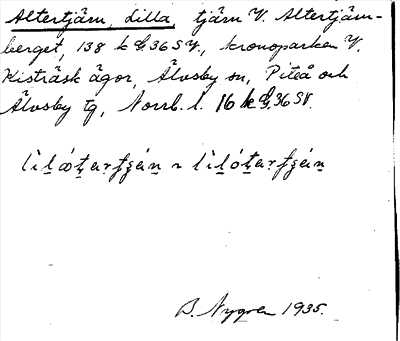 Altertjärn, Lilla, tjärn V. Altertjärn-
berget, 138 k 36 SV., kronoparken V.
Kisträsk ägor, Älvsby sn, Piteå och
Älvsby tg, Norrb. l. 16 36 SV.
B. Nygren 1935.